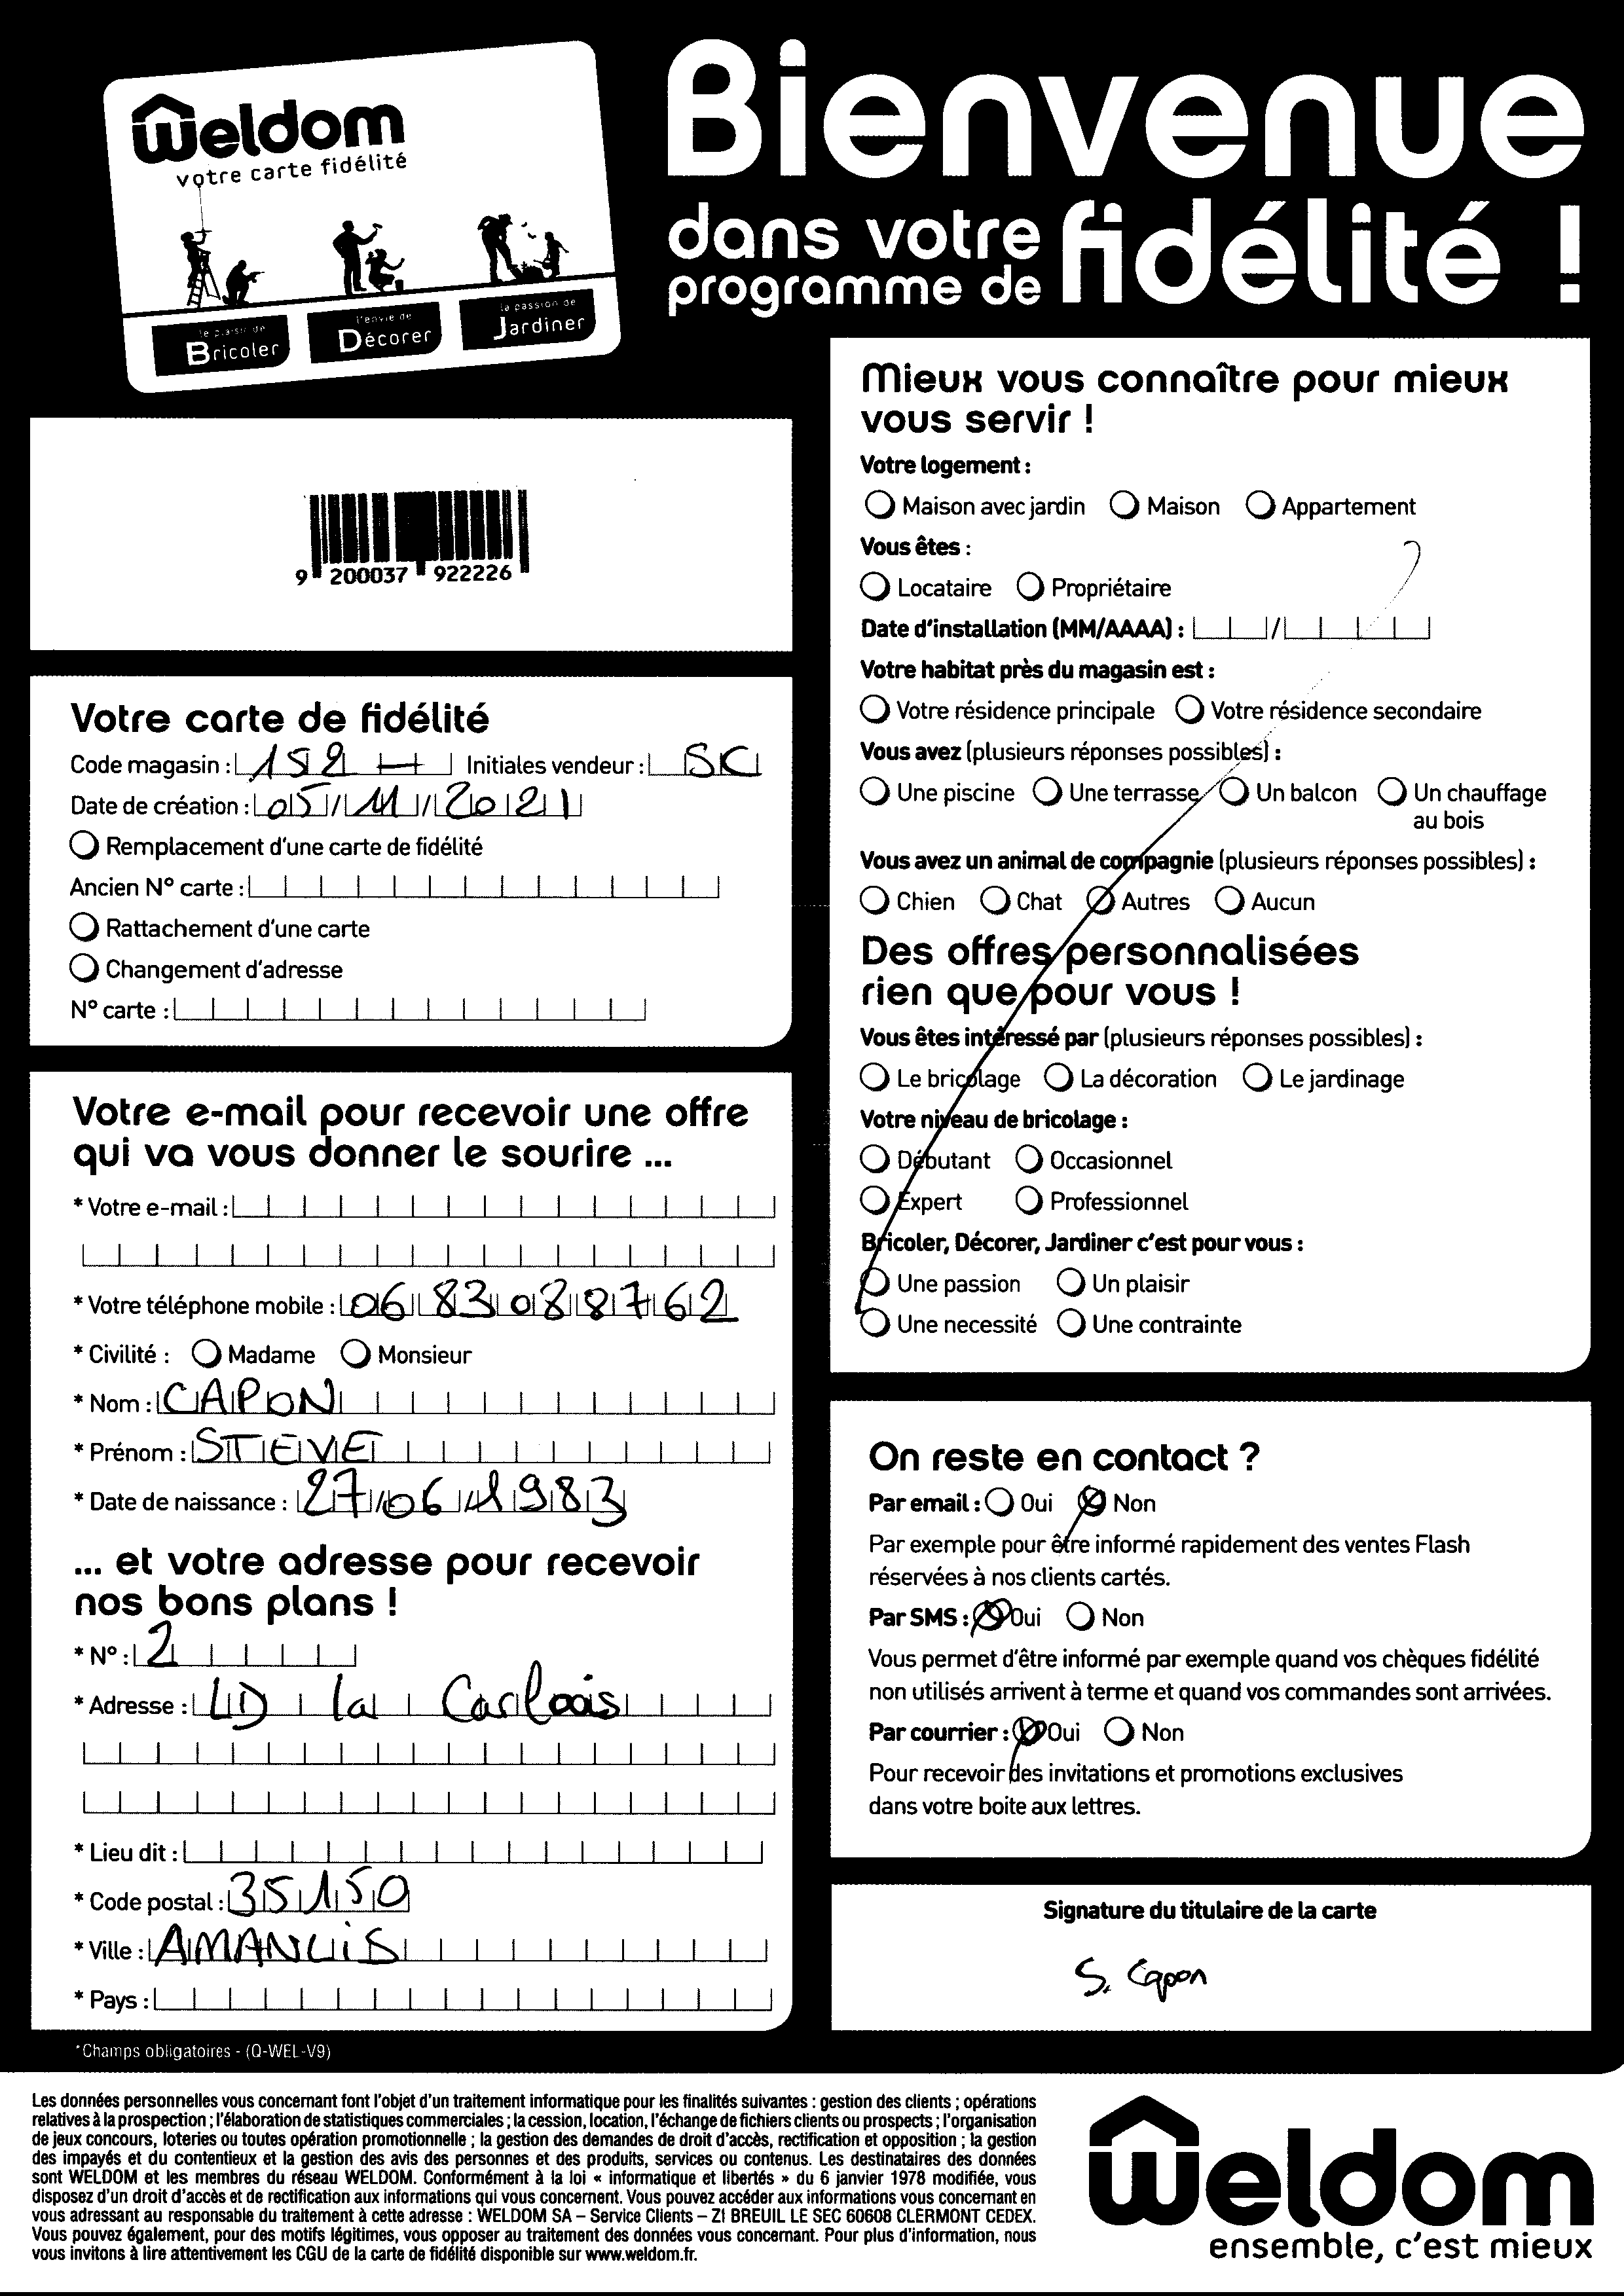 Weldom
votre carte fidélité
le plaisir de
Bricoler
l'envie de
Décorer
la passion de
Jardiner
Bienvenue
dans votre
programme de fidélité !
9 200037 922226
Votre carte de fidélité
Code magasin : 152 H Initiales vendeur : SC
Date de création : 05/11/2021
Remplacement d'une carte de fidélité
Ancien N° carte :
Rattachement d'une carte
Changement d'adresse
N° carte :
Votre e-mail pour recevoir une offre
qui va vous donner le sourire ...
* Votre e-mail :
* Votre téléphone mobile : 0683088762
* Civilité : Madame Monsieur
* Nom : CAPON
* Prénom : STEVE
* Date de naissance : 27/06/1983
... et votre adresse pour recevoir
nos bons plans !
* N° : 2
* Adresse : LD la
* Lieu dit :
* Code postal : 35150
* Ville : AMANLIS
* Pays :
*Champs obligatoires - (Q-WEL-V9)
Mieux vous connaître pour mieux
vous servir !
Votre logement :
Maison avec jardin Maison Appartement
Vous êtes :
Locataire Propriétaire
Date d'installation (MM/AAAA) : /
Votre habitat près du magasin est :
Votre résidence principale Votre résidence secondaire
Vous avez (plusieurs réponses possibles) :
Une piscine Une terrasse Un balcon Un chauffage
au bois
Vous avez un animal de compagnie (plusieurs réponses possibles) :
Chien Chat Autres Aucun
Des offres personnalisées
rien que pour vous !
Vous êtes intéressé par (plusieurs réponses possibles) :
Le bricolage La décoration Le jardinage
Votre niveau de bricolage :
Débutant Occasionnel
Expert Professionnel
Bricoler, Décorer, Jardiner c'est pour vous :
Une passion Un plaisir
Une necessité Une contrainte
On reste en contact ?
Par email : Oui Non
Par exemple pour être informé rapidement des ventes Flash
réservées à nos clients cartés.
Par SMS : Oui Non
Vous permet d'être informé par exemple quand vos chèques fidélité
non utilisés arrivent à terme et quand vos commandes sont arrivées.
Par courrier : Oui Non
Pour recevoir des invitations et promotions exclusives
dans votre boite aux lettres.
Signature du titulaire de la carte
S. Capon
Les données personnelles vous concernant font l'objet d'un traitement informatique pour les finalités suivantes : gestion des clients ; opérations
relatives à la prospection ; l'élaboration de statistiques commerciales ; la cession, location, l'échange de fichiers clients ou prospects ; l'organisation
de jeux concours, loteries ou toutes opération promotionnelle ; la gestion des demandes de droit d'accès, rectification et opposition ; la gestion
des impayés et du contentieux et la gestion des avis des personnes et des produits, services ou contenus. Les destinataires des données
sont WELDOM et les membres du réseau WELDOM. Conformément à la loi « informatique et libertés » du 6 janvier 1978 modifiée, vous
disposez d'un droit d'accès et de rectification aux informations qui vous concernent. Vous pouvez accéder aux informations vous concernant en
vous adressant au responsable du traitement à cette adresse : WELDOM SA – Service Clients – ZI BREUIL LE SEC 60608 CLERMONT CEDEX.
Vous pouvez également, pour des motifs légitimes, vous opposer au traitement des données vous concernant. Pour plus d'information, nous
vous invitons à lire attentivement les CGU de la carte de fidélité disponible sur www.weldom.fr.
Weldom
ensemble, c'est mieux